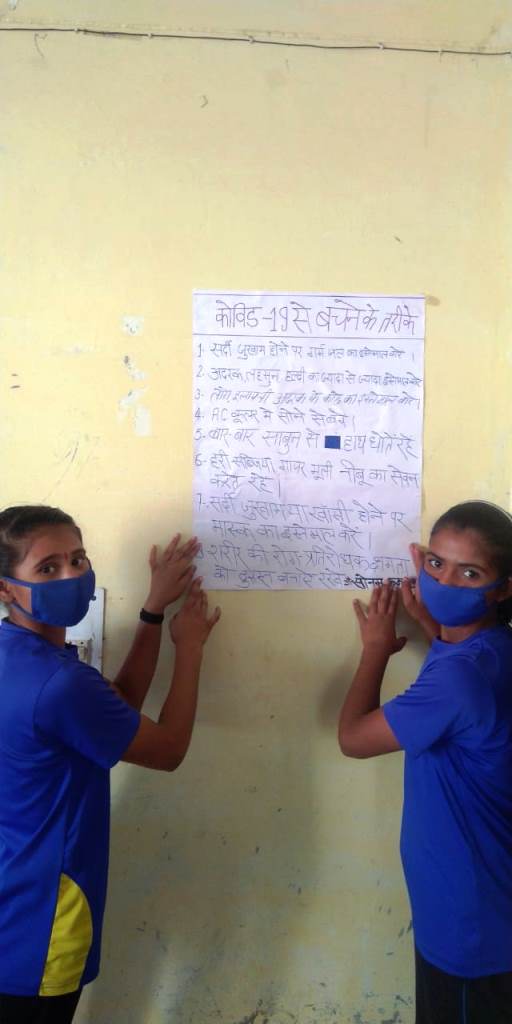 कोविड -19 से बचने के तरीके
1- सर्दी जुखाम होने पर गर्म जल का इस्तेमाल करे ।
2. अदरक, लहसुन हल्दी का ज्यादा से ज्यादा इस्तेमाल करे
3- लौंग इलायची अदरक के का इस्तेमाल करे ।
4. AC कूलर मे सोने से बचे ।
5- बार बार साबुन से हाथ धोते रहे
6- हरी सब्जिया गाजर मूली नीबू का सेवन
करते रहे ।
7- सर्दी जुखाम या खांसी होने पर
मास्क का इस्तेमाल करे ।
8 शरीर की रोग प्रतिरोधक क्षमता
को दुरुस्त बनाए रखे